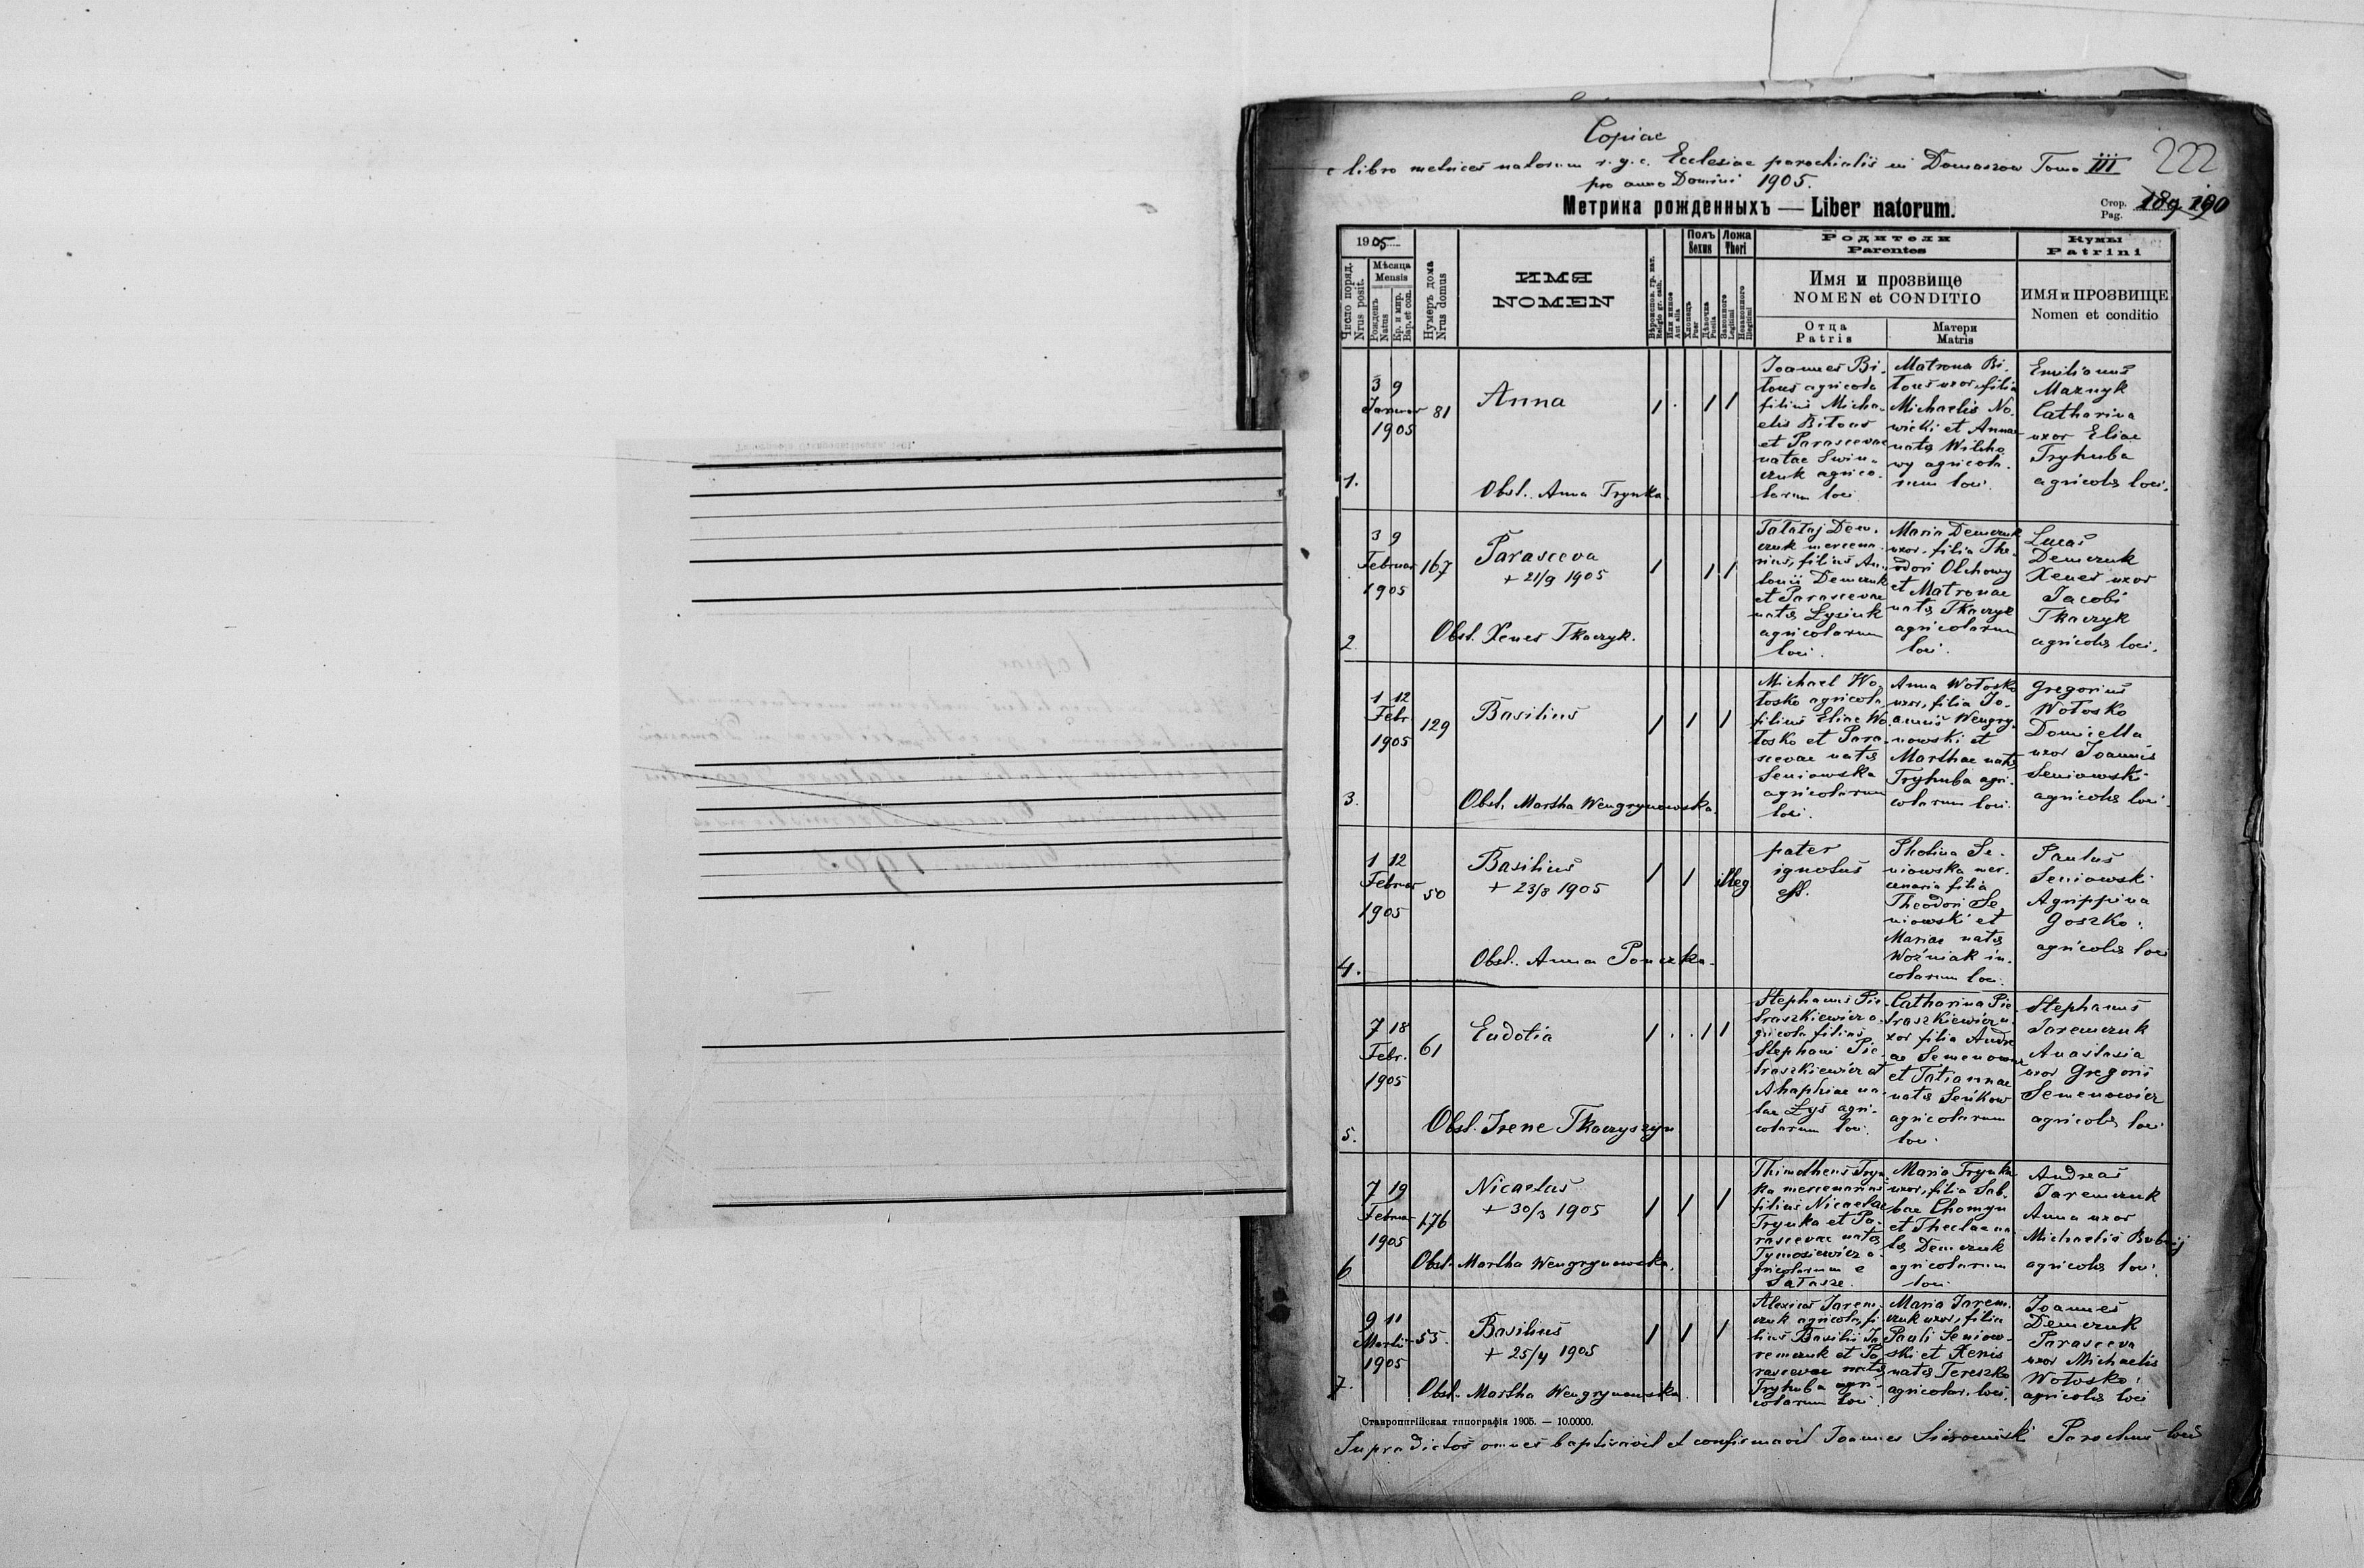 Copiae
e libro metrices natorum r. g. c. Ecclesiae parochialis in Domaszow Tomo III
pro anno Domini 1905.
222
Метрика рожденныхъ — Liber natorum.
Стор.
Pag.
189 190
1905
Число поряд.
Nrus posit.
Мѣсяца
Mensis
Рожденъ
Natus
Кр. и мир.
Bap. et con.
Нумеръ дома
Nrus domus
ИМЯ
NOMEN
Вѣроиспов. гр. кат.
Religio gr. cath.
Или инное
Aut alia
Полъ
Sexus
Хлопець
Puer
Дѣвочка
Puella
Ложа
Thori
Законного
Legitimi
Незаконного
Illegitimi
Родители
Parentes
Имя и прозвище
NOMEN et CONDITIO
Отца
Patris
Матери
Matris
Кумы
Patrini
ИМЯ и ПРОЗВИЩЕ
Nomen et conditio
1.
3 9
Januar
1905
81
Anna
Obst. Anna Trynka.
Joannes Bi-
tous agricola
filius Micha-
elis Bitous
et Parascevae
natae Swin-
czuk agrico-
larum loci
Matrona Bi-
tous uxor, filia
Michaelis No-
wicki et Annae
natae Wilcho
wy agricola-
rum loci.
Emilianus
Maznyk
Catharina
uxor Eliae
Tryhuba
agricolae loci.
2
3 9
Februar
1905
167
Parasceva
+ 21/9 1905
Obst. Xenes Tkaczyk.
Demczuk mercena-
rius, filius An-
tonii Demczuk
et Parascevae
natae Łysiuk
agricolarum
loci.
Maria Demczuk
uxor, filia The-
odori Olchowy
et Matronae
natae Tkaczyk
agricolarum
loci.
Lucas
Demczuk
Xenes uxor
Jacobi
Tkaczyk
agricolae loci.
3.
1 12
Febr
1905
129
Basilius
Obst. Martha Wengrynowska.
Michael Wo-
łosko agricola
filius Eliae Wo-
łosko et Para-
scevae natae
Seniowska
agricolarum
loci.
Anna Wołosko
uxor, filia Jo-
annis Wengry-
nowski et
Marthae natae
Tryhuba agri-
colarum loci.
Gregorius
Wołosko
Domicella
uxor Joannis
Seniowski
agricolae loci.
4.
1 12
Februar
1905
50
Basilius
+ 23/8 1905
illeg
Obst. Anna Ponczka.
pater
ignotus
est.
Photina Se-
niowska mer-
cenaria filia
Theodori Se-
niowski et
Mariae natae
Woźniak in-
colarum loci.
Paulus
Seniowski
Agrippina
Goszko:
agricolae loci
5.
7 18
Febr.
1905
61
Eudotia
Obst. Irene Tkaczyszyn
Stephanus Pie-
traszkiewicz a-
gricola filius
Stephani Pie-
traszkiewicz et
Ahaphiae na-
tae Łyś agri-
colarum loci.
Catharina Pie-
traszkiewicz u-
xor filia Andre
ae Semenowicz
et Tatiannae
natae Senkow
agricolarum
loci.
Stephanus
Jaremczuk
Anastasia
uxor Gregorii
Semenowicz
agricolae loci
6
7 19
Februar
1905
176
Nicaelus
+ 30/3 1905
Obst. Martha Wengrynowska.
Thimotheus Tryn-
ka mercenarius
filius Nicaelae
Trynka et Pa-
rascevae natae
Tymosiewicz a-
gricolarum e
Sałasze.
Maria Trynka
uxor, filia Sab-
bae Chomyn
et Theclae na
tae Demczuk
agricolarum
loci.
Andreas
Jaremczuk
Anna uxor
Michaelis Bubnij
agricolae loci.
7.
9 11
Martii
1905
55.
Basilius
+ 25/4 1905
Obst. Martha Wengrynowska.
Alexius Jarem-
czuk agricola, fi-
lius Basilii Ja
remczuk et Pa
rascevae natae
Tryhuba agri-
colarum loci.
Maria Jarem-
czuk uxor, filia
Pauli Seniow-
ski et Xenis
natae Tereszko
agricolar. loci.
Joannes
Demczuk
Parasceva
uxor Michaelis
Wołosko:
agricolae loci
Ставропигійская типографія 1905. — 10.0000.
Supradictos omnes baptisavit et confirmavit Joannes Parochus loci